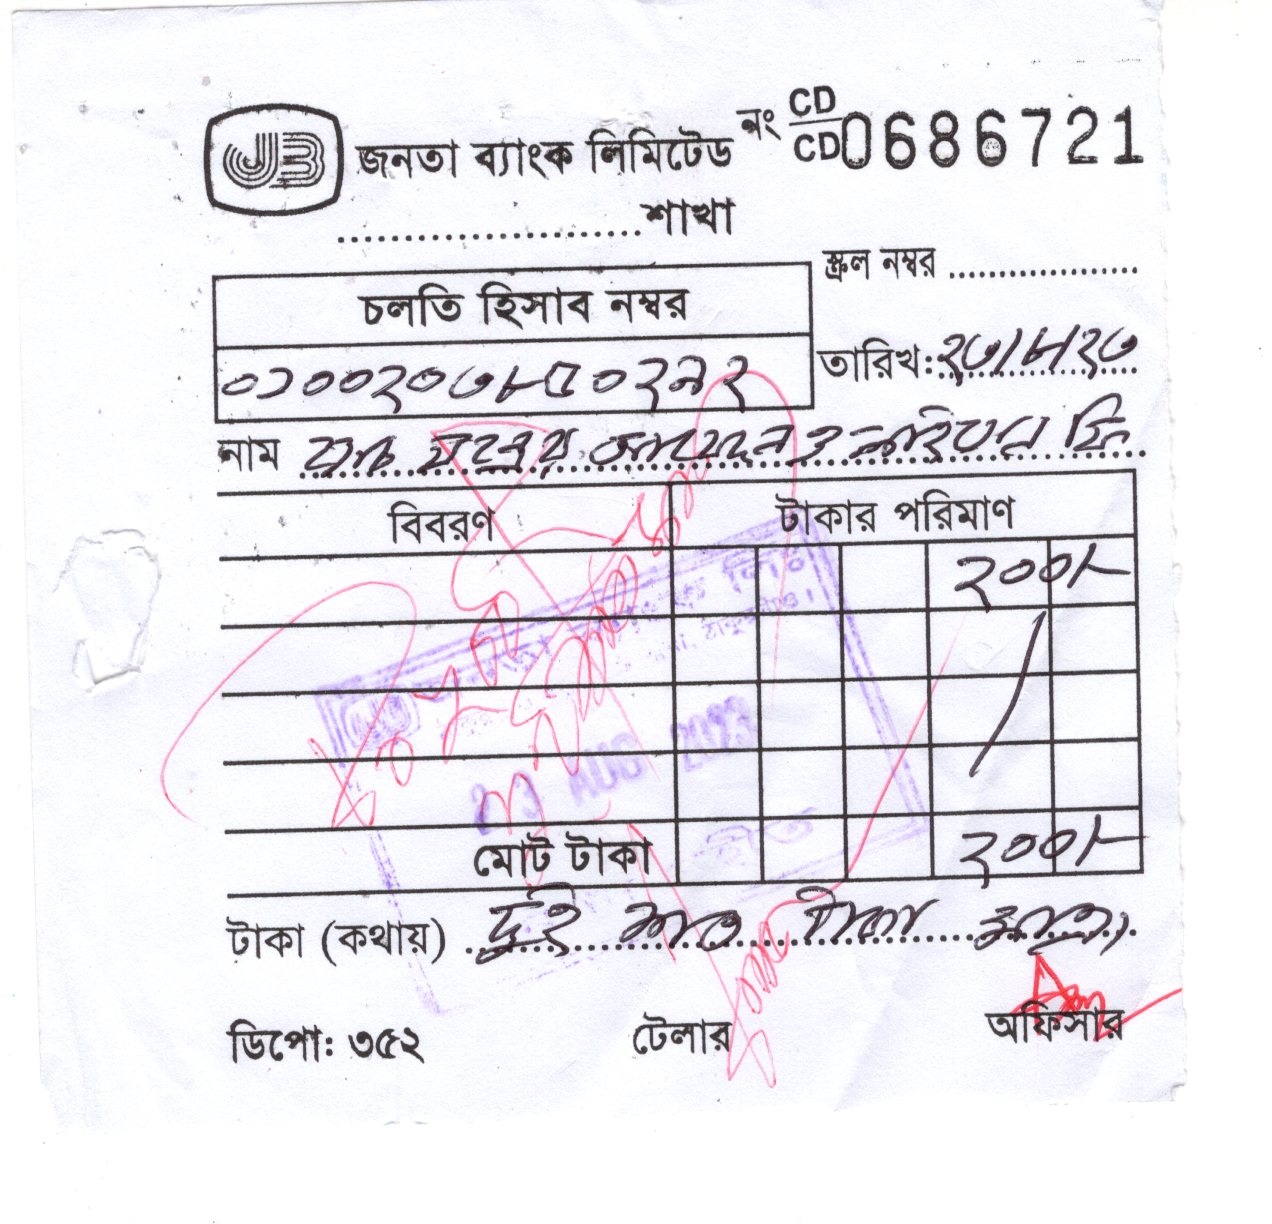 JB জনতা ব্যাংক লিমিটেড নং CD/CD 0686721
........................শাখা
স্ক্রল নম্বর ....................
চলতি হিসাব নম্বর
তারিখ: ২৩/৮/২৩
০১০০২০৩৮৫০২৯২
নাম ও লাইসেন্স ফি
বিবরণ টাকার পরিমাণ
২০০/-
23 AUG 2023
মোট টাকা ২০০/-
টাকা (কথায়) দুই শত টাকা মাত্র।
ডিপো: ৩৫২ টেলার অফিসার